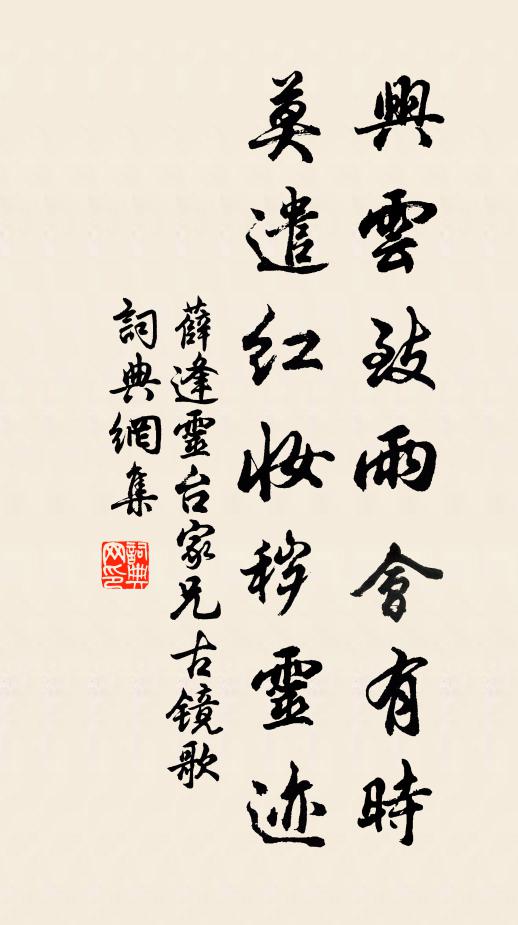 興雲致雨會有時
莫遣红妝秽靈迹
薛逢靈台家兄古镜歌
詞典網集
詞典网印